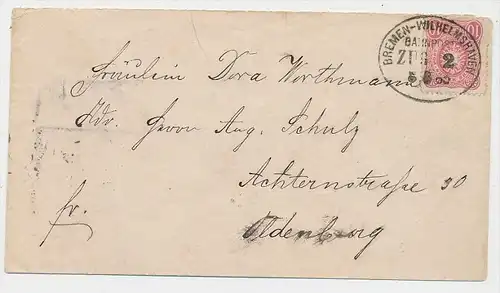 BREMEN-WILHELMSHAVEN
BAHNP
ZPS 2
Fräulein Dora Worthmann
Adr. Herrn Aug. Schulz
Achternstraße 30
fr.
Oldenburg